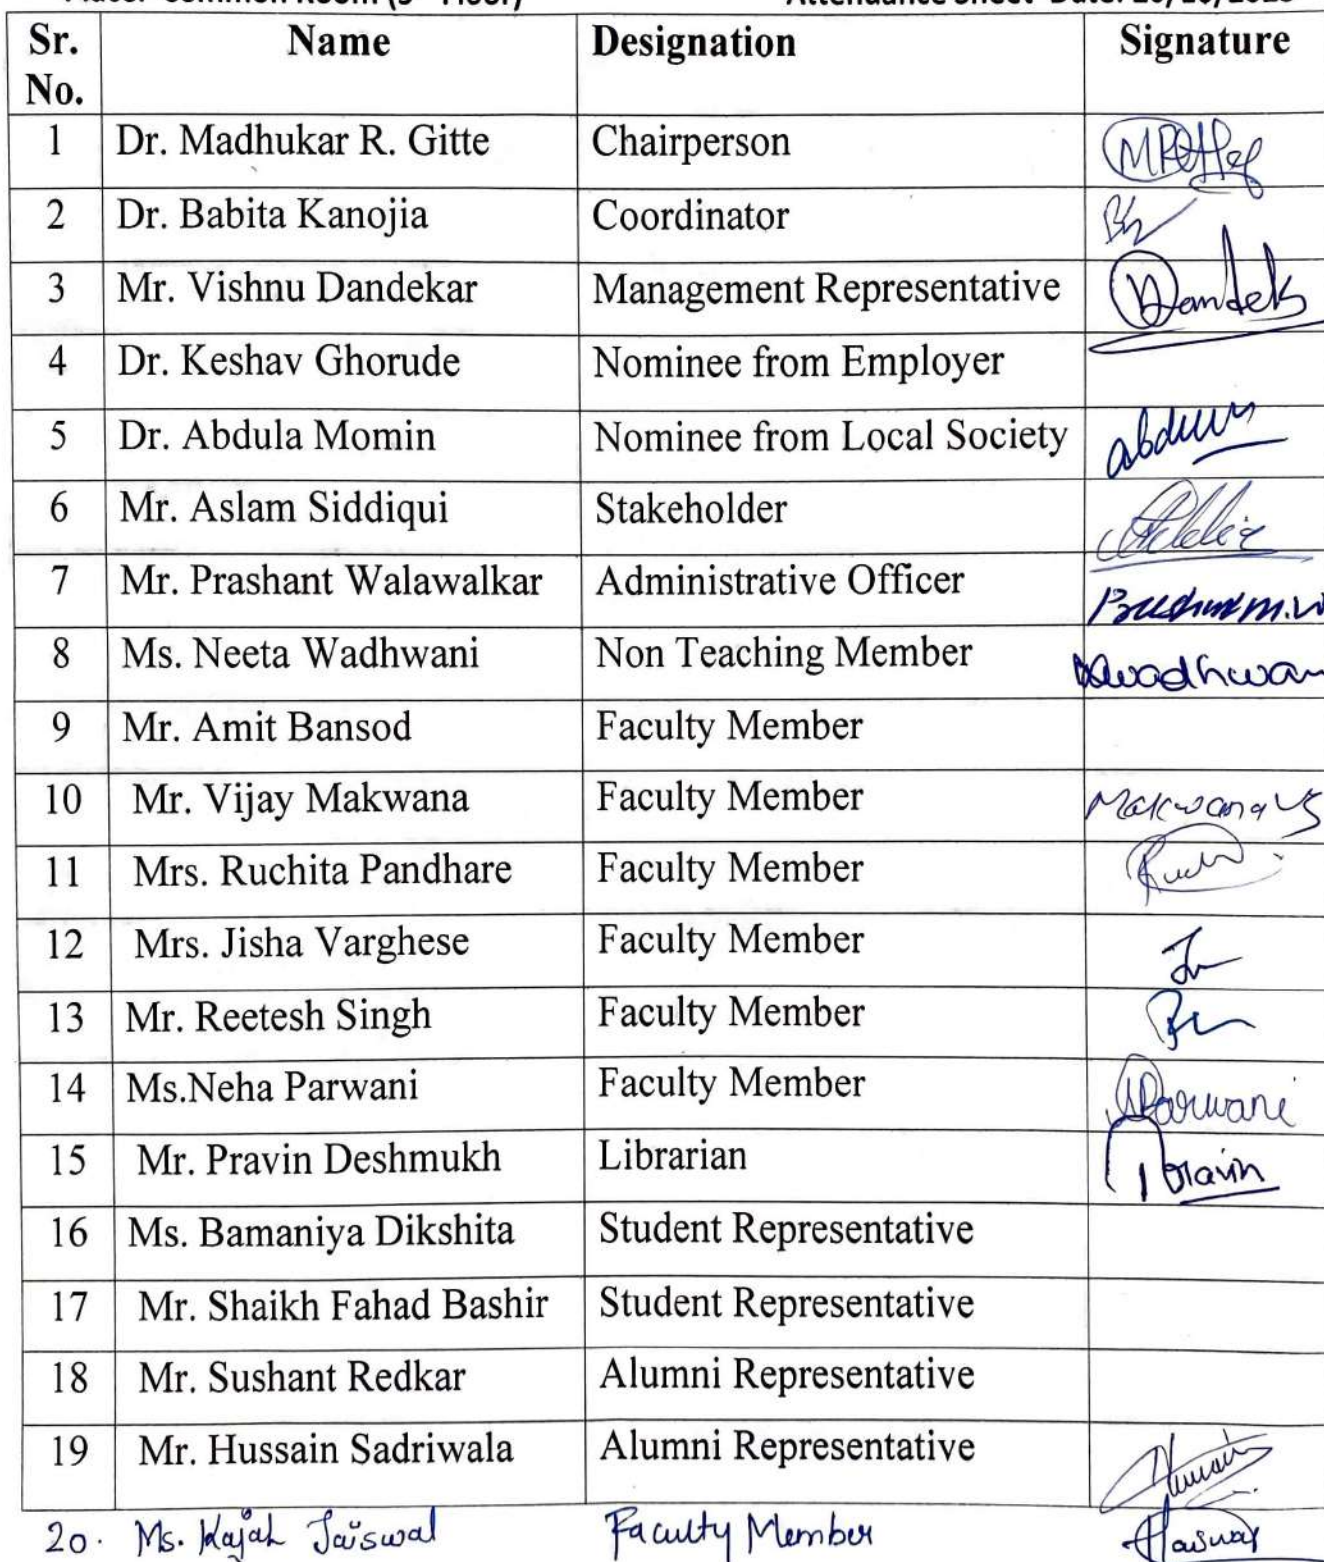 Sr. No. Name Designation Signature
1 Dr. Madhukar R. Gitte Chairperson
2 Dr. Babita Kanojia Coordinator
3 Mr. Vishnu Dandekar Management Representative
4 Dr. Keshav Ghorude Nominee from Employer
5 Dr. Abdula Momin Nominee from Local Society
6 Mr. Aslam Siddiqui Stakeholder
7 Mr. Prashant Walawalkar Administrative Officer
8 Ms. Neeta Wadhwani Non Teaching Member
9 Mr. Amit Bansod Faculty Member
10 Mr. Vijay Makwana Faculty Member
11 Mrs. Ruchita Pandhare Faculty Member
12 Mrs. Jisha Varghese Faculty Member
13 Mr. Reetesh Singh Faculty Member
14 Ms.Neha Parwani Faculty Member
15 Mr. Pravin Deshmukh Librarian
16 Ms. Bamaniya Dikshita Student Representative
17 Mr. Shaikh Fahad Bashir Student Representative
18 Mr. Sushant Redkar Alumni Representative
19 Mr. Hussain Sadriwala Alumni Representative
20. Ms. Kajal Jaiswal Faculty Member